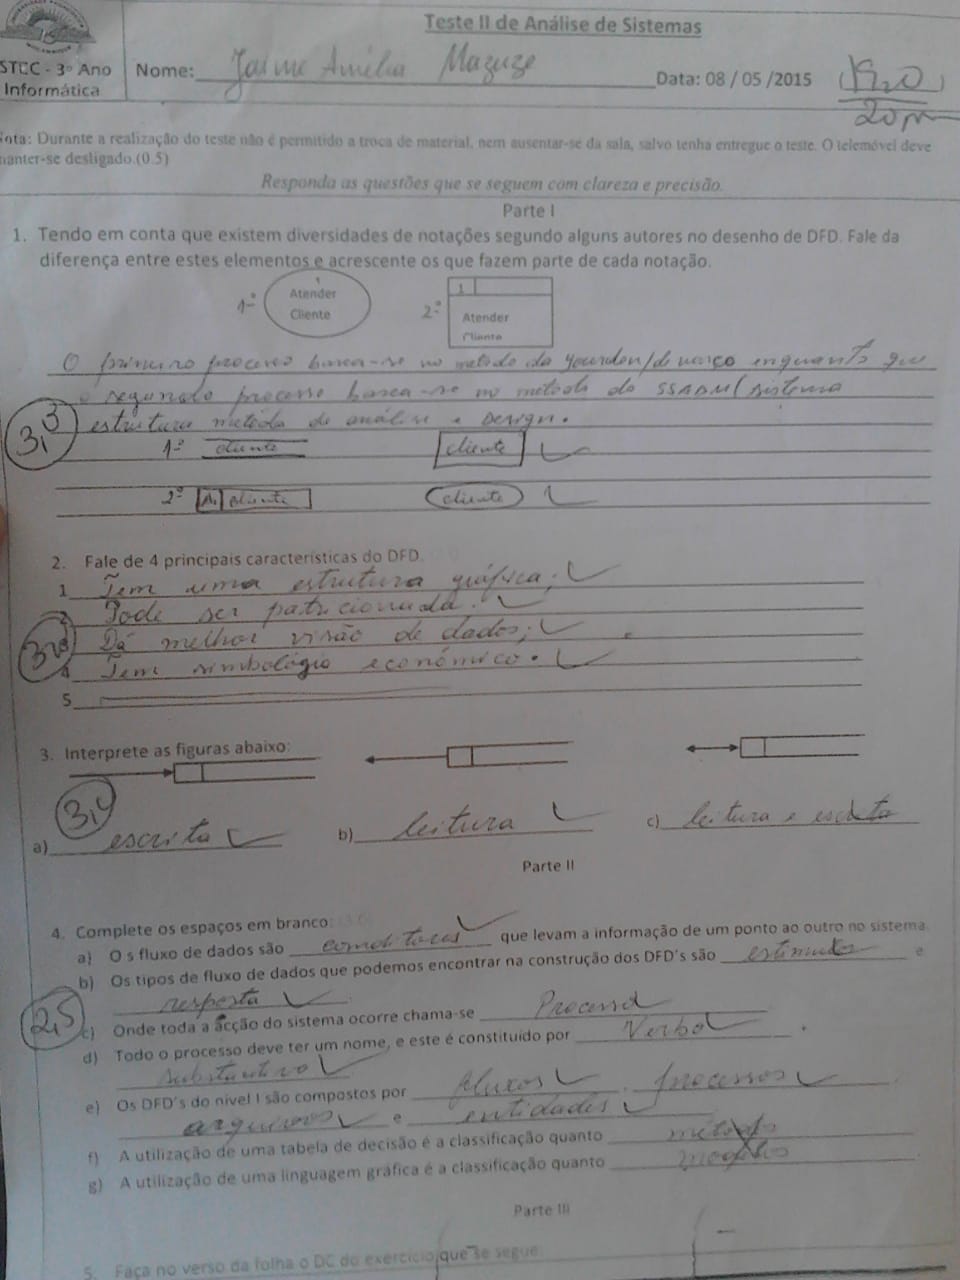 Teste II de Análise de Sistemas
STCC - 3º Ano
Informática
Nome: Jaime Amélia Mazuze
Data: 08 / 05 /2015
20
Nota: Durante a realização do teste não é permitido a troca de material, nem ausentar-se da sala, salvo tenha entregue o teste. O telemóvel deve
manter-se desligado.(0.5)
Responda as questões que se seguem com clareza e precisão.
Parte I
1. Tendo em conta que existem diversidades de notações segundo alguns autores no desenho de DFD. Fale da
diferença entre estes elementos e acrescente os que fazem parte de cada notação.
1º 1 Atender Cliente
2º 1 Atender Cliente
O primeiro processo basea-se no metodo da yourdon/ enquanto que
o segundo processo basea-se no metodo do SSADM/sistema
estrutura metodo de análise e Design.
3,3
1º cliente cliente
2º A1 cliente cliente
2. Fale de 4 principais características do DFD.
1 Tem uma estrutura gráfica;
2 Pode ser patricionada.
3 Dá melhor visão de dados;
4 Tem simbologia económico.
5
3. Interprete as figuras abaixo:
a) escrita b) leitura c) leitura e escrita
Parte II
4. Complete os espaços em branco:
a) O s fluxo de dados são que levam a informação de um ponto ao outro no sistema
b) Os tipos de fluxo de dados que podemos encontrar na construção dos DFD's são estimulo e
resposta
2,5
c) Onde toda a acção do sistema ocorre chama-se Processo
d) Todo o processo deve ter um nome, e este é constituído por Verbo
substantivo
e) Os DFD's do nivel I são compostos por fluxos, processos
arquivos e entidades
f) A utilização de uma tabela de decisão é a classificação quanto
g) A utilização de uma linguagem gráfica é a classificação quanto
Parte III
5. Faça no verso da folha o DC do exercício que se segue: